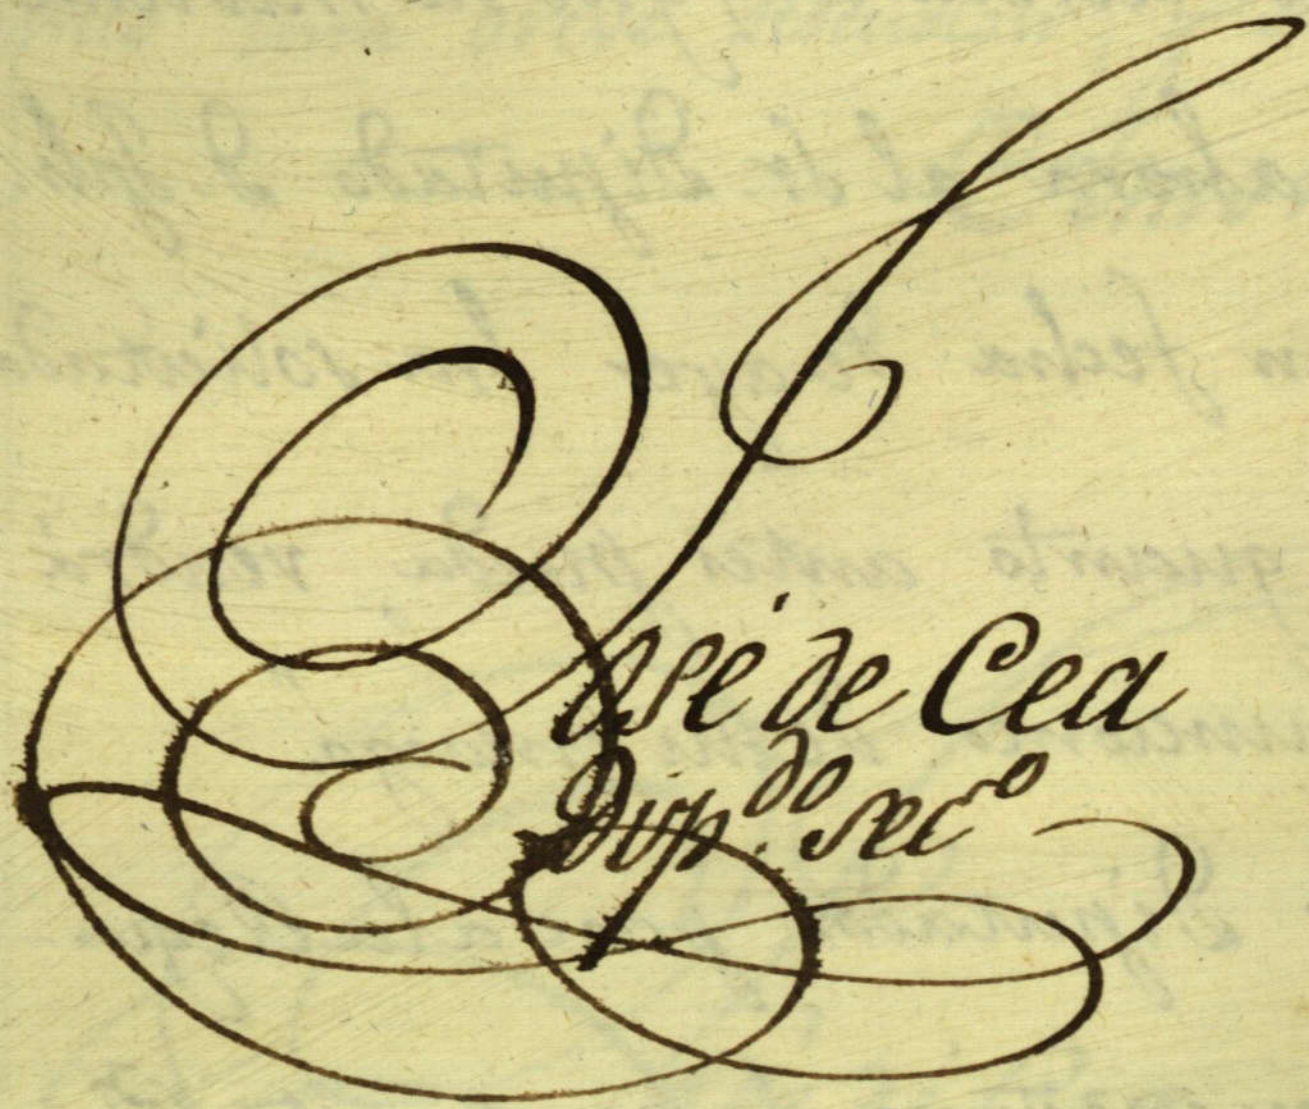 José de Cea
Dip.do sec.o